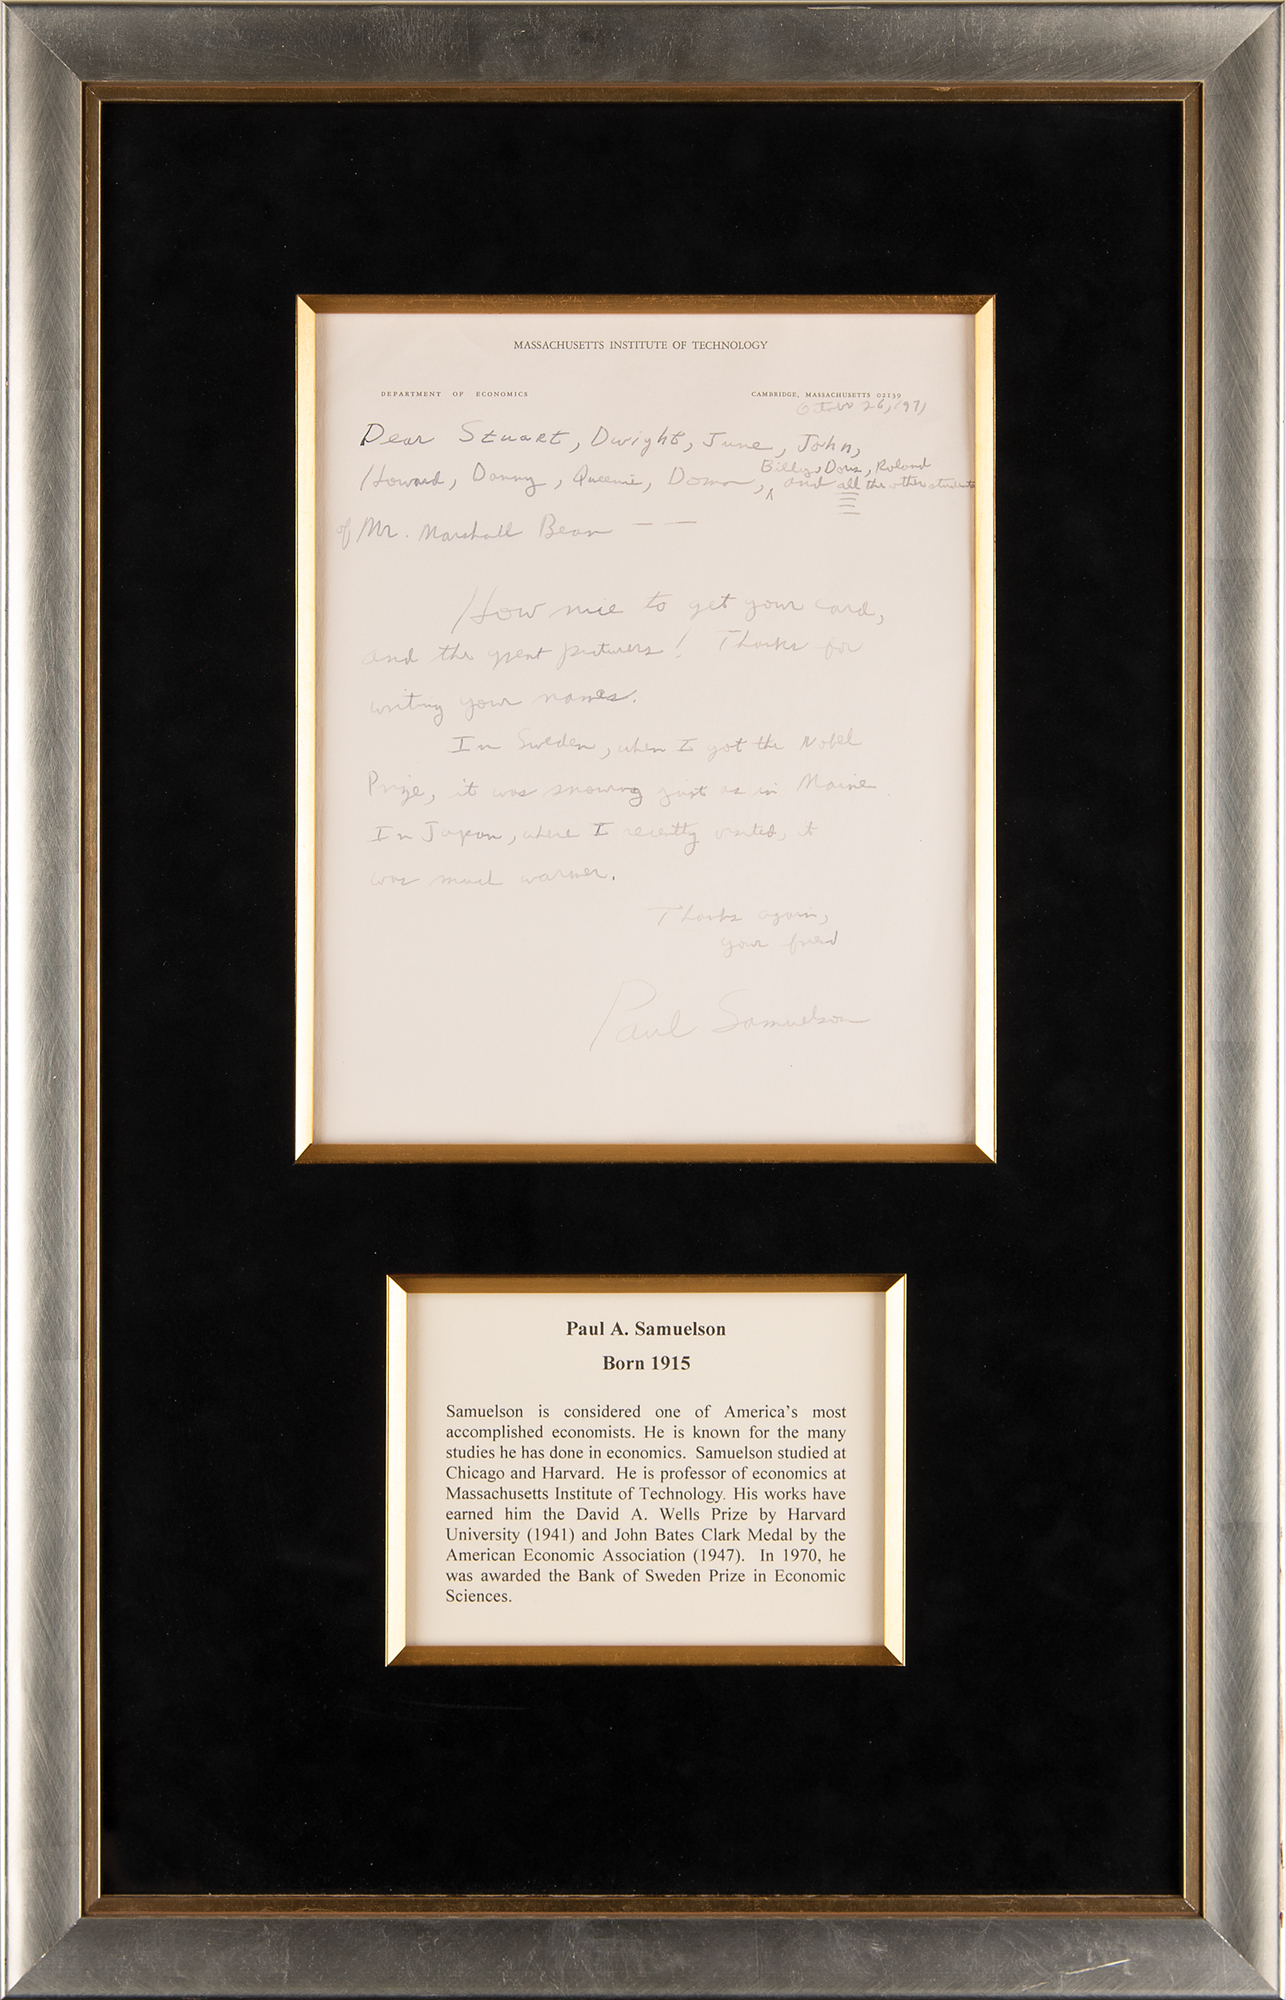 MASSACHUSETTS INSTITUTE OF TECHNOLOGY
DEPARTMENT OF ECONOMICS
CAMBRIDGE, MASSACHUSETTS 02139
October 26, 1971
Dear Stuart, Dwight, June, John,
Billy, Doris, Roland
Howard, Danny, Queenie, and all the other students
of Mr. Marshall Bean — —
How nice to get your card,
and the great pictures! Thanks for
writing your names.
In Sweden, when I got the Nobel
Prize, it was snowing just as in Maine.
In Japan, where I recently visited, it
was much warmer.
Thanks again,
your friend
Paul Samuelson
Paul A. Samuelson
Born 1915
Samuelson is considered one of America's most
accomplished economists. He is known for the many
studies he has done in economics. Samuelson studied at
Chicago and Harvard. He is professor of economics at
Massachusetts Institute of Technology. His works have
earned him the David A. Wells Prize by Harvard
University (1941) and John Bates Clark Medal by the
American Economic Association (1947). In 1970, he
was awarded the Bank of Sweden Prize in Economic
Sciences.